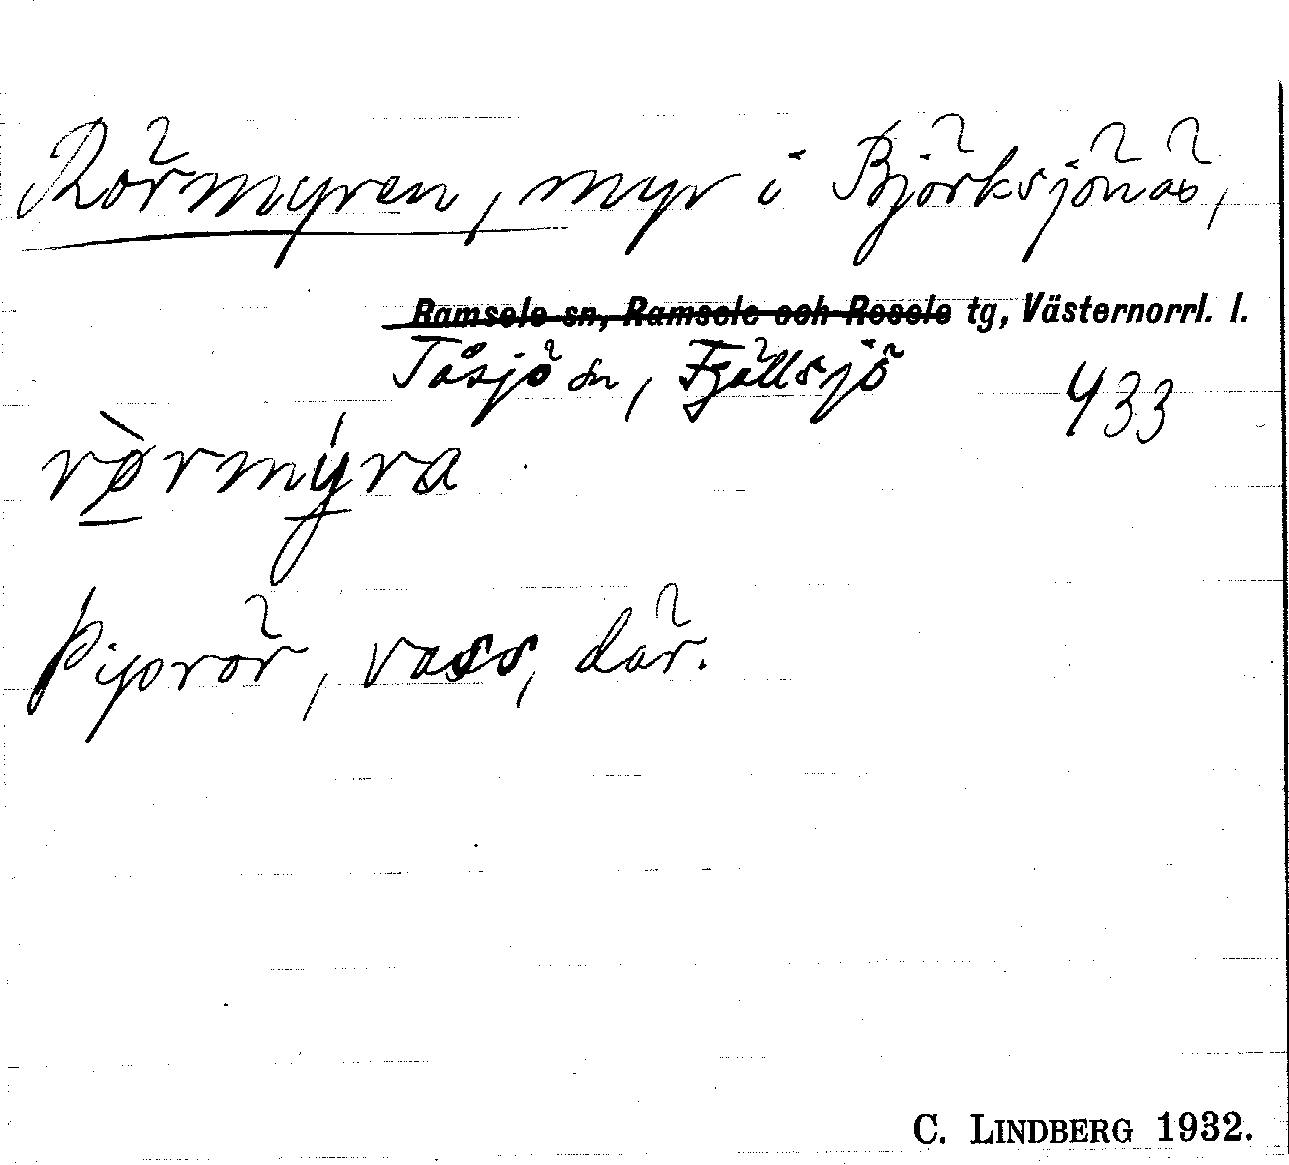 Rörmyren, myr i Björksjönäs,
Ramsele sn, Ramsele och Resele tg, Västernorrl. l.
Tåsjö sn, Fjällsjö 433
rø̀rmýra
Þiporör, vass, där.
C. LINDBERG 1932.